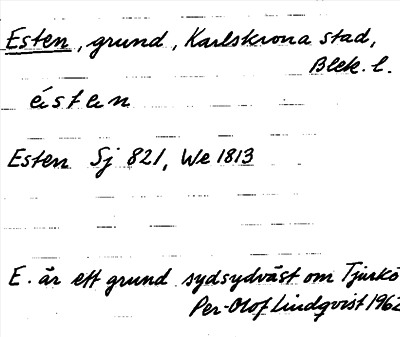 Esten, grund, Karlskrona stad,
Blek. l.
ésten
Esten Sj 821, We 1813
E. är ett grund sydsydväst om Tjurkö
Per-Olof Lindqvist 1962